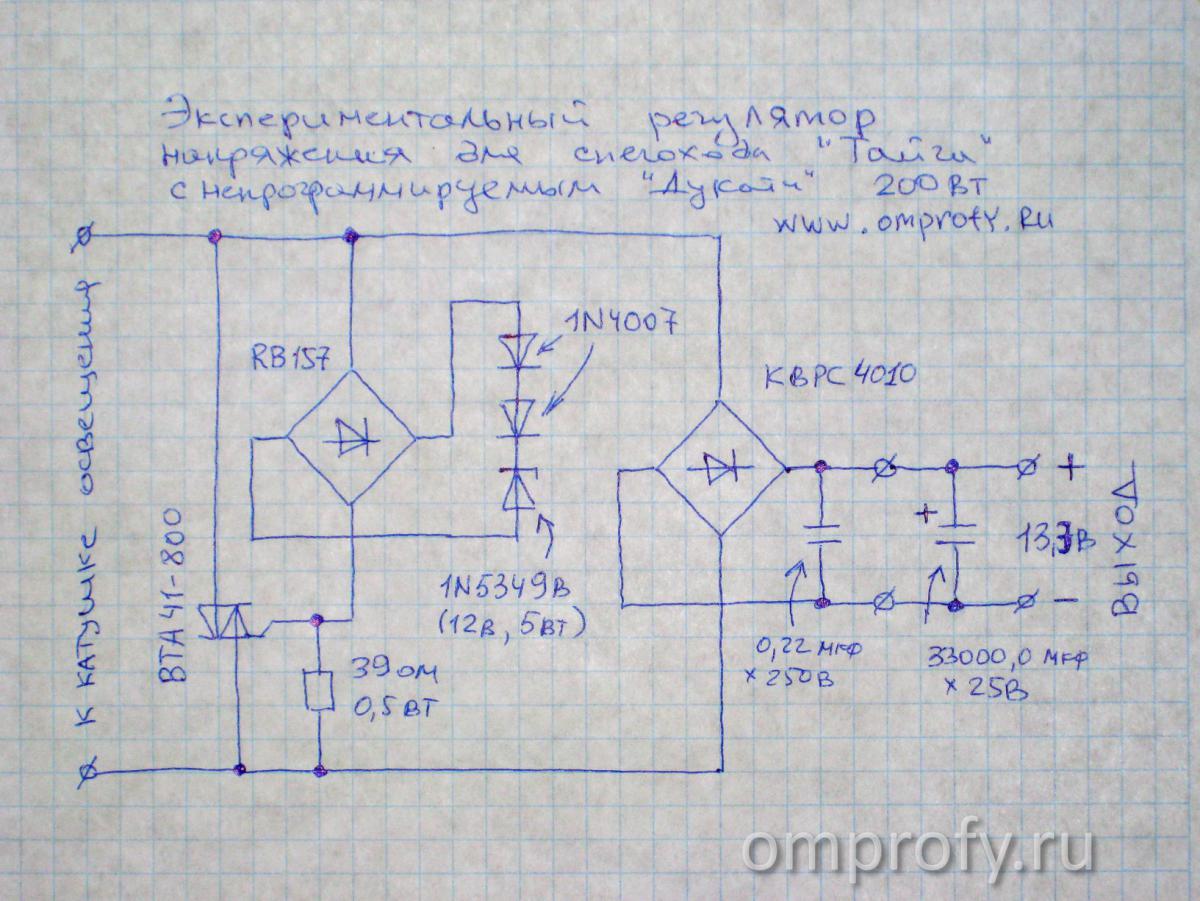 Экспериментальный регулятор
напряжения для снегохода "Тайга"
с непрограммируемым "Дукати" 200 Вт
www.omprofy.Ru
К катушке освещения
RB157
1N4007
КВРС 4010
ВТА 41-800
1N5349В
(12в, 5вт)
39 ом
0,5 вт
+
+
13,3в
−
ВЫХОД
0,22 мкф
х 250в
33000,0 мкф
х 25в
omprofy.ru